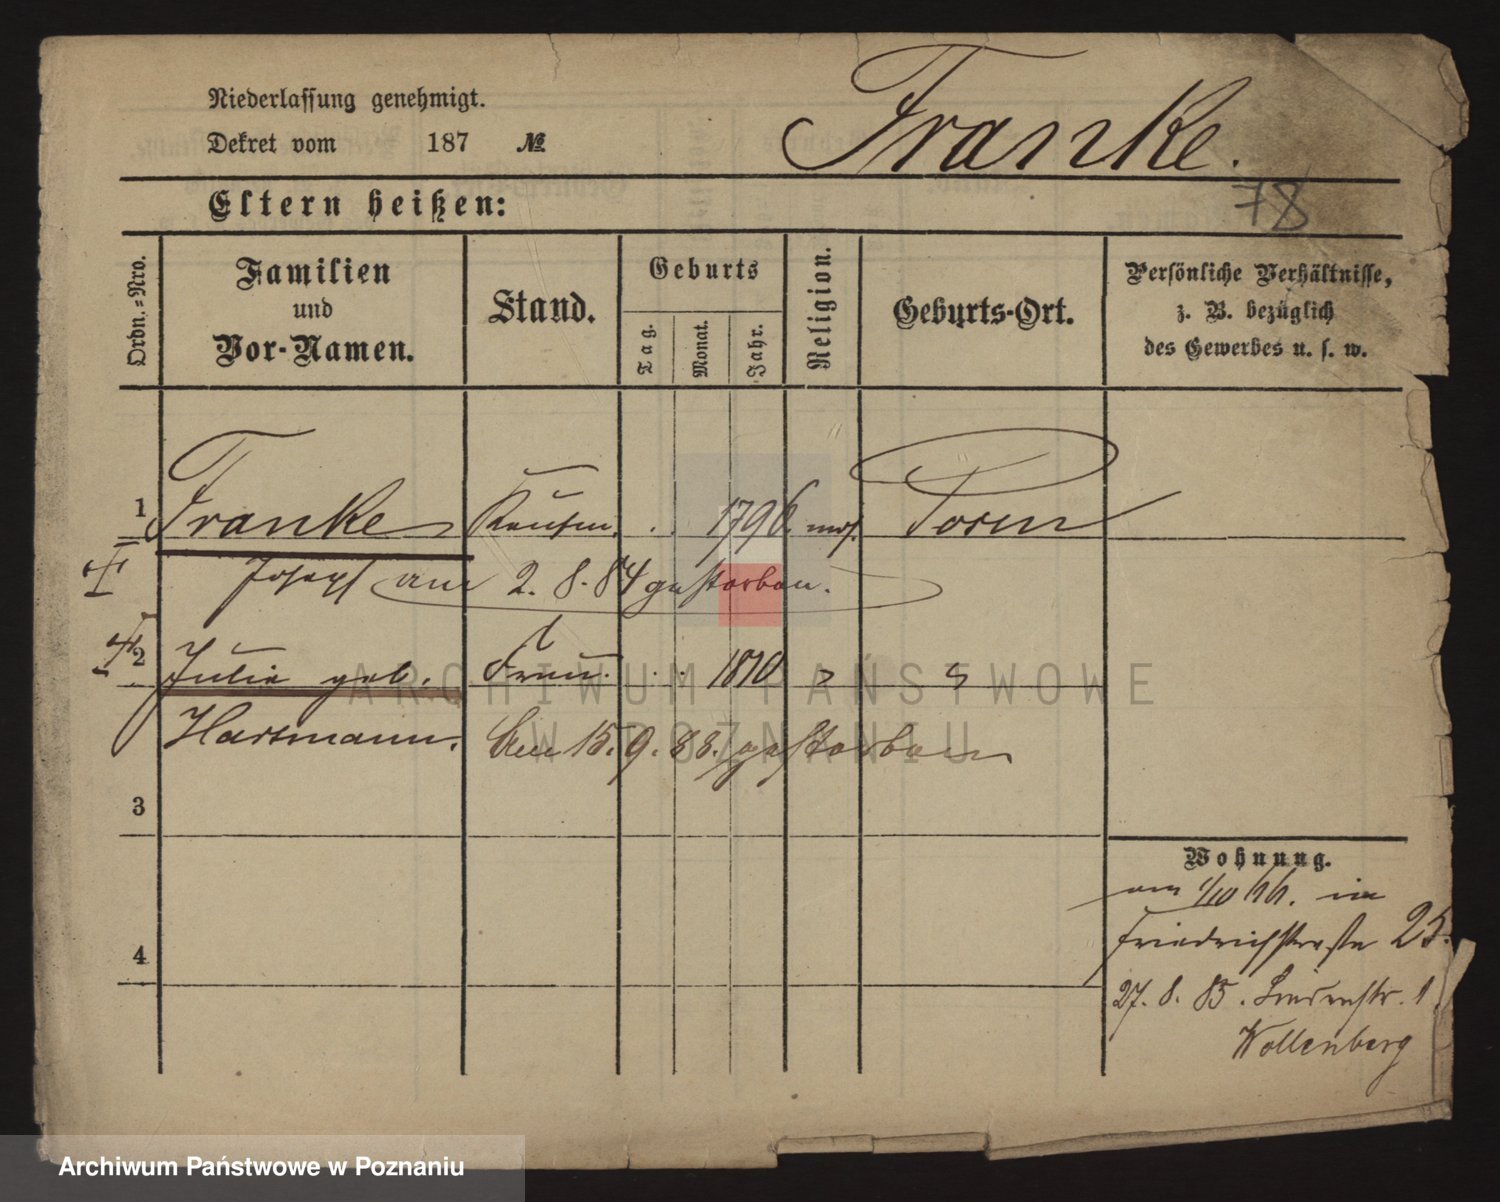 Niederlassung genehmigt.
Dekret vom 187 №
Franke.
78
Eltern heißen:
Ordn.-Nro.
Familien
und
Vor-Namen.
Stand.
Geburts
Tag.
Monat.
Jahr.
Religion.
Geburts-Ort.
Persönliche Verhältnisse,
z. B. bezüglich
des Gewerbes u. s. w.
1 Franke Kaufm. . . 1796. mos. Posen
Joseph am 2. 8. 84 gestorben.
2 Julie geb. Frau. . . 1810 " "
Hartmann. Am 15. 9. 88. gestorben
3
4
Wohnung.
am 1/10 in
Friedrichstraße 25.
27. 8. 85. Lindenstr. 1
Wollenberg
ARCHIWUM PAŃSTWOWE
W POZNANIU
Archiwum Państwowe w Poznaniu